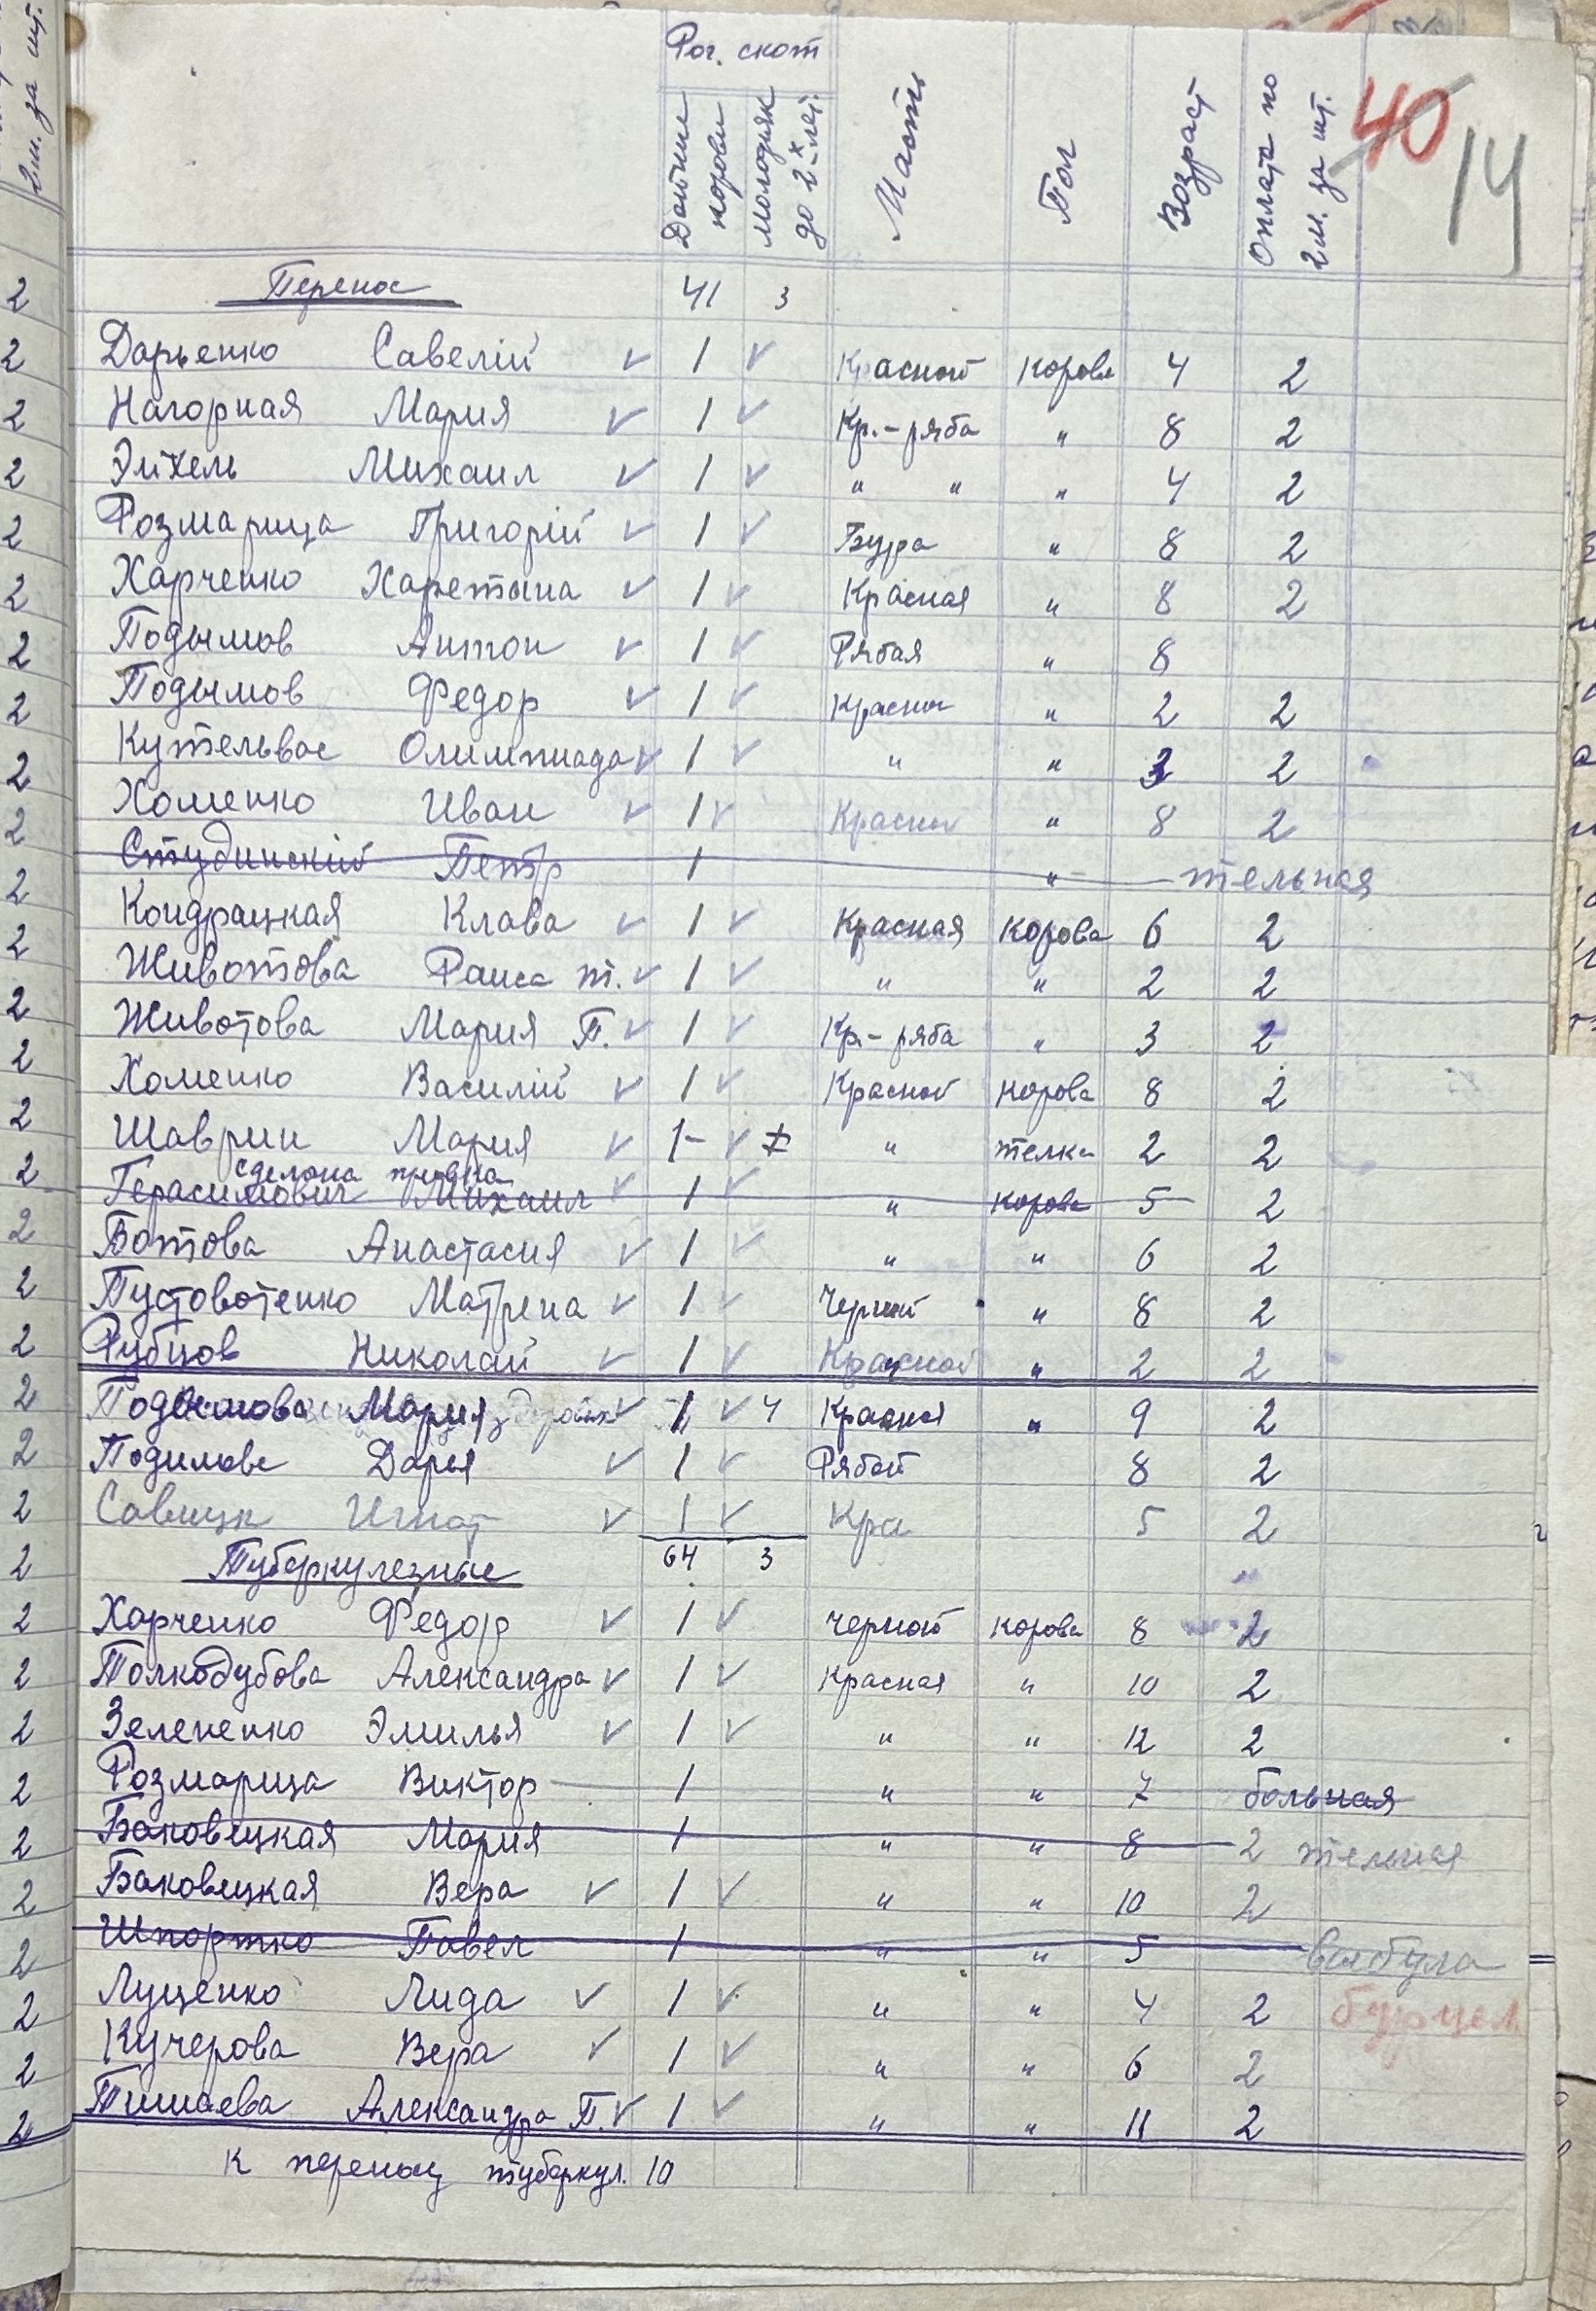 Рог. скот
Дойные коровы
молодняк до 2-х лет.
Масть
Пол
Возраст
Оплата по 2 м. за шт.
40
14
2 м. за шт.
Перенос 41 3
Дорьенко Савелій √ 1 √ Красной корова 4 2
Нагорная Мария √ 1 √ Кр.-ряба " 8 2
Эйхель Михаил √ 1 √ " " " 4 2
Розмарица Григорій √ 1 √ Бура " 8 2
Харченко Харетына √ 1 √ Красная " 8 2
Подымов Антон √ 1 √ Рябая " 8
Подымов Федор √ 1 √ Красная " 2 2
Кутельвас Олимпиада √ 1 √ " " 3 2
Хоменко Иван √ 1 √ Красная " 8 2
Студинский Петр 1 " тельная
Кондрацкая Клава √ 1 √ Красная корова 6 2
Животова Раиса т. √ 1 √ " " 2 2
Животова Мария П. √ 1 √ Кр.-ряба " 3 2
Хоменко Василій √ 1 √ Красной корова 8 2
Шаврин Мария √ 1- √ " телка 2 2
сделана
Герасимович Михаил √ 1 √ " корова 5 2
Ботова Анастасия √ 1 √ " " 6 2
Пустовотенко Матрена √ 1 √ Черный " 8 2
Рубцов Николай √ 1 √ Красной " 2 2
Подымова Мария √ 1 √ 4 Красная " 9 2
Подимова Дарья √ 1 √ Рябой 8 2
Савицк Игнат √ 1 √ Кра 5 2
64 3
Туберкулезные
Харченко Федор √ 1 √ черной корова 8 2
Толкодубова Александра √ 1 √ Красная " 10 2
Зелененко Эмилья √ 1 √ " " 12 2
Розмарица Виктор 1 " " 7 больная
Баковецкая Мария 1 " " 8 2 тельная
Баковецкая Вера √ 1 √ " " 10 2
Шпортко Павел 1 " " 5
Луценко Лида √ 1 √ " " 4 2
Кучерова Вера √ 1 √ " " 6 2
Тишаева Александра П. √ 1 √ " " 11 2
К переносу туберкул. 10